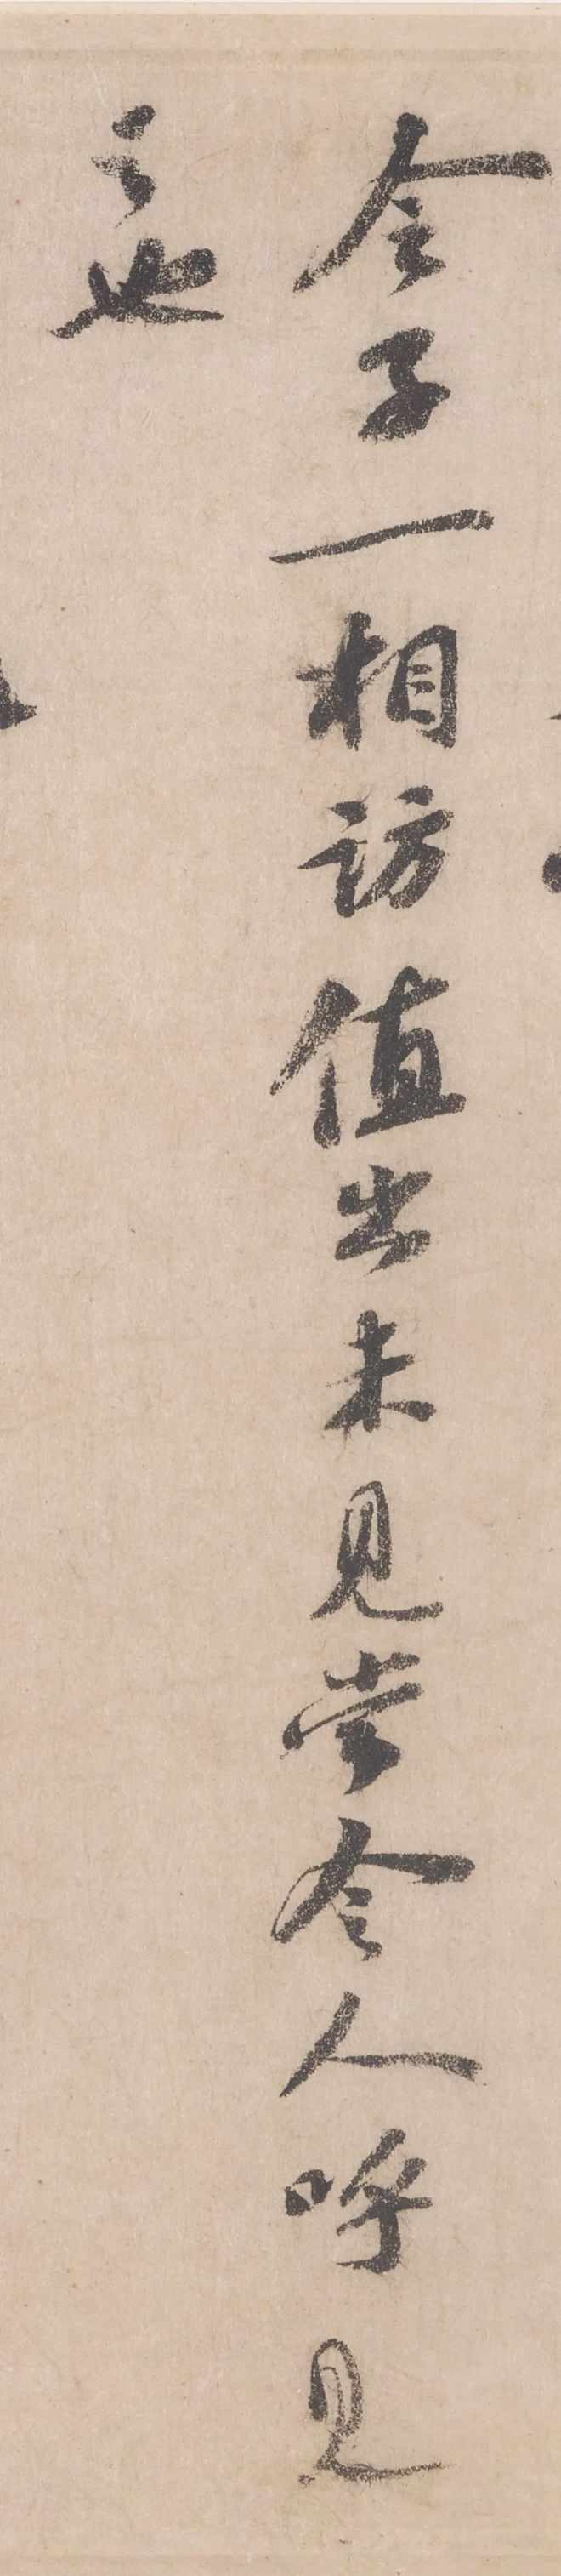 令子一相訪值出未見當令人呼見
之也